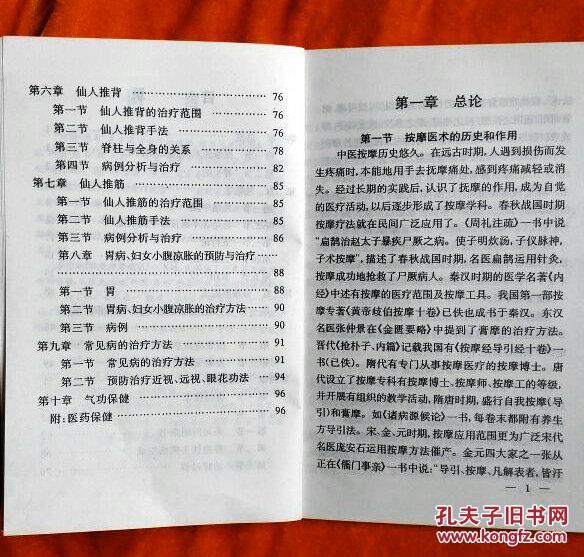 第六章 仙人推背 …………………… 76
第一节 仙人推背的治疗范围 ………… 76
第二节 仙人推背手法 ……………… 76
第三节 脊柱与全身的关系 ………… 78
第四节 病例分析与治疗 …………… 82
第七章 仙人推筋 …………………… 85
第一节 仙人推筋的治疗范围 ………… 85
第二节 仙人推筋手法 ……………… 85
第三节 病例分析与治疗 …………… 86
第八章 胃病、妇女小腹凉胀的预防与治疗……
…………………………………… 88
第一节 胃 ………………………… 88
第二节 胃病、妇女小腹凉胀的治疗方法 … 90
第三节 病例 ……………………… 90
第九章 常见病的治疗方法 …………… 91
第一节 常见病的治疗方法 ………… 91
第二节 预防治疗近视、远视、眼花功法 … 94
第十章 气功保健 …………………… 96
附:医药保健 ……………………… 96
第一章 总论
第一节 按摩医术的历史和作用
中医按摩历史悠久。在远古时期,人遇到损伤而发
生疼痛时,本能地用手去抚摩痛处,感到疼痛减轻或消
失。经过长期的实践后,认识了抚摩的作用,成为自觉
的医疗活动,以后逐步形成了按摩学科。春秋战国时期
按摩疗法就在民间广泛应用了。《周礼注疏》一书中说
“扁鹊治赵太子暴疾尸厥之病。使子明炊汤,子仪脉神,
子术按摩”,描述了春秋战国时期,名医扁鹊运用针灸、
按摩成功地抢救了尸厥病人。秦汉时期的医学名著《内
经》中述有按摩的医疗范围及按摩工具。我国第一部按
摩专著《黄帝歧伯按摩十卷》已佚也成书于秦汉。东汉
名医张仲景在《金匮要略》中提到了膏摩的治疗方法。
晋代《抢朴子、内篇》记载我国有《按摩经导引经十卷》一
书(已佚)。隋代有专门从事按摩医疗的按摩博士。唐
代设立了按摩专科有按摩博士、按摩师、按摩工的等级,
并开展有组织的教学活动,隋唐时期,盛行自我按摩(导
引)和膏摩。如《诸病源候论》一书,每卷末都附有养生
方导引法。宋、金、元时期,按摩应用范围更为广泛宋代
名医庞安石运用按摩方法催产。金元四大家之一张从
正在《儒门事亲》一书中说:“导引、按摩、凡解表者,皆汗
— 1 —
孔夫子旧书网